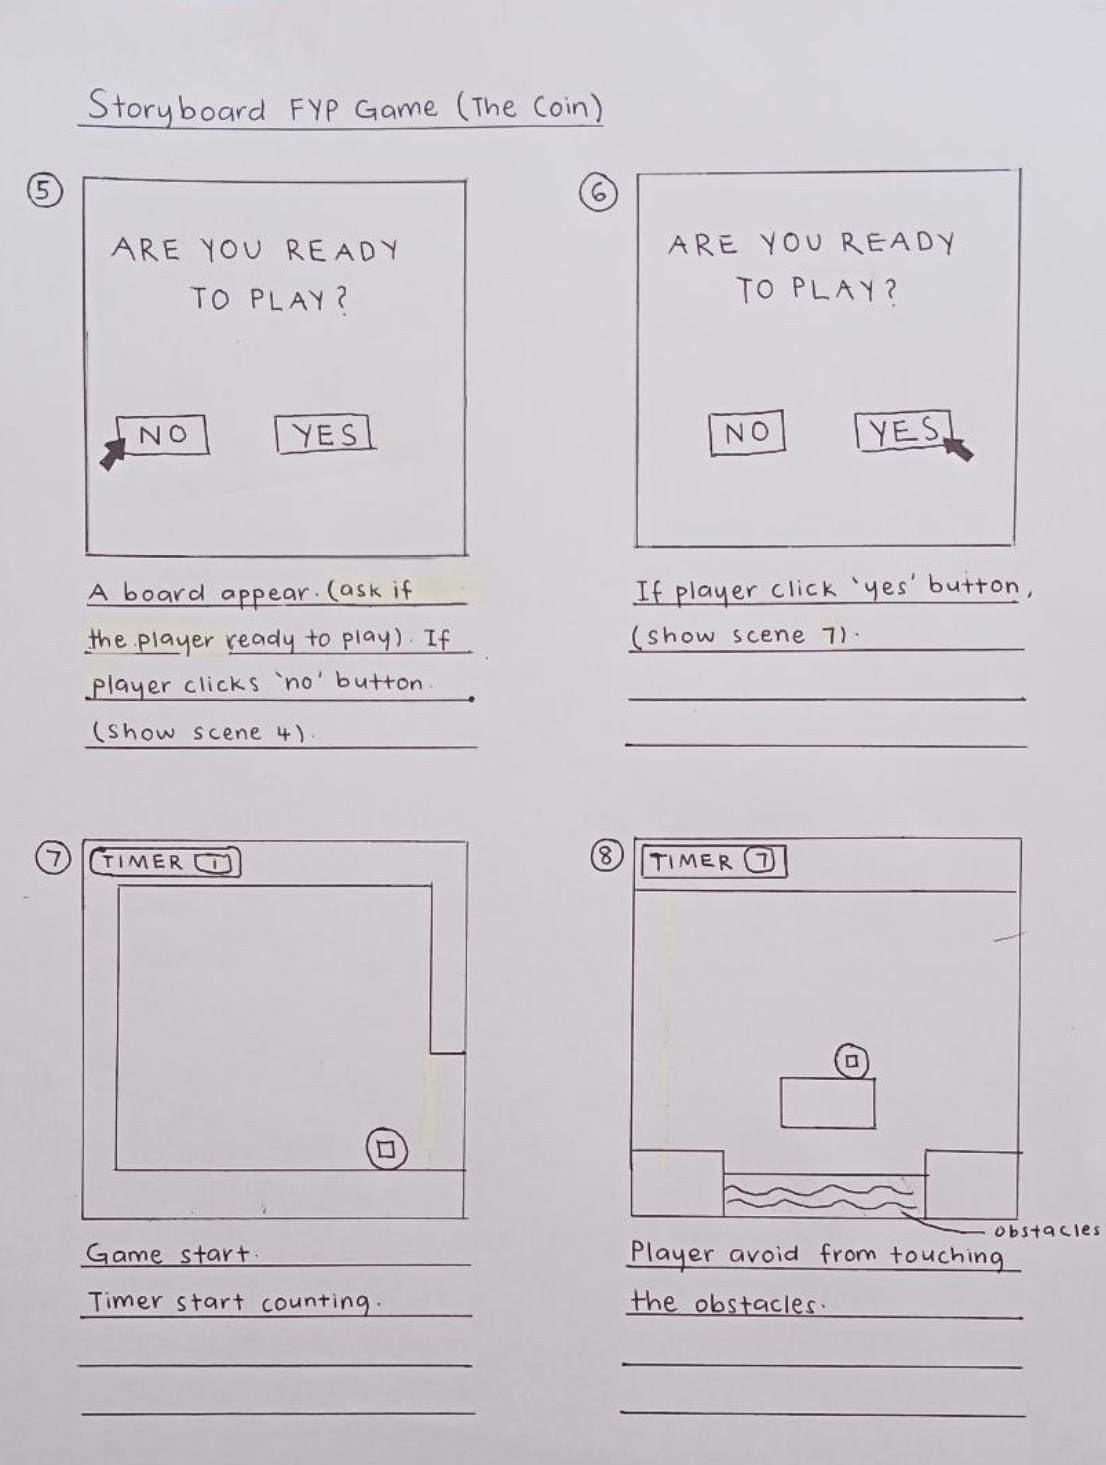 Storyboard FYP Game (The Coin)
5
ARE YOU READY
TO PLAY?
NO
YES
A board appear. (ask if
the player ready to play). If
player clicks 'no' button.
(show scene 4).
6
ARE YOU READY
TO PLAY?
NO
YES
If player click 'yes' button,
(show scene 7).
7
TIMER 1
Game start.
Timer start counting.
8
TIMER 7
obstacles
Player avoid from touching
the obstacles.